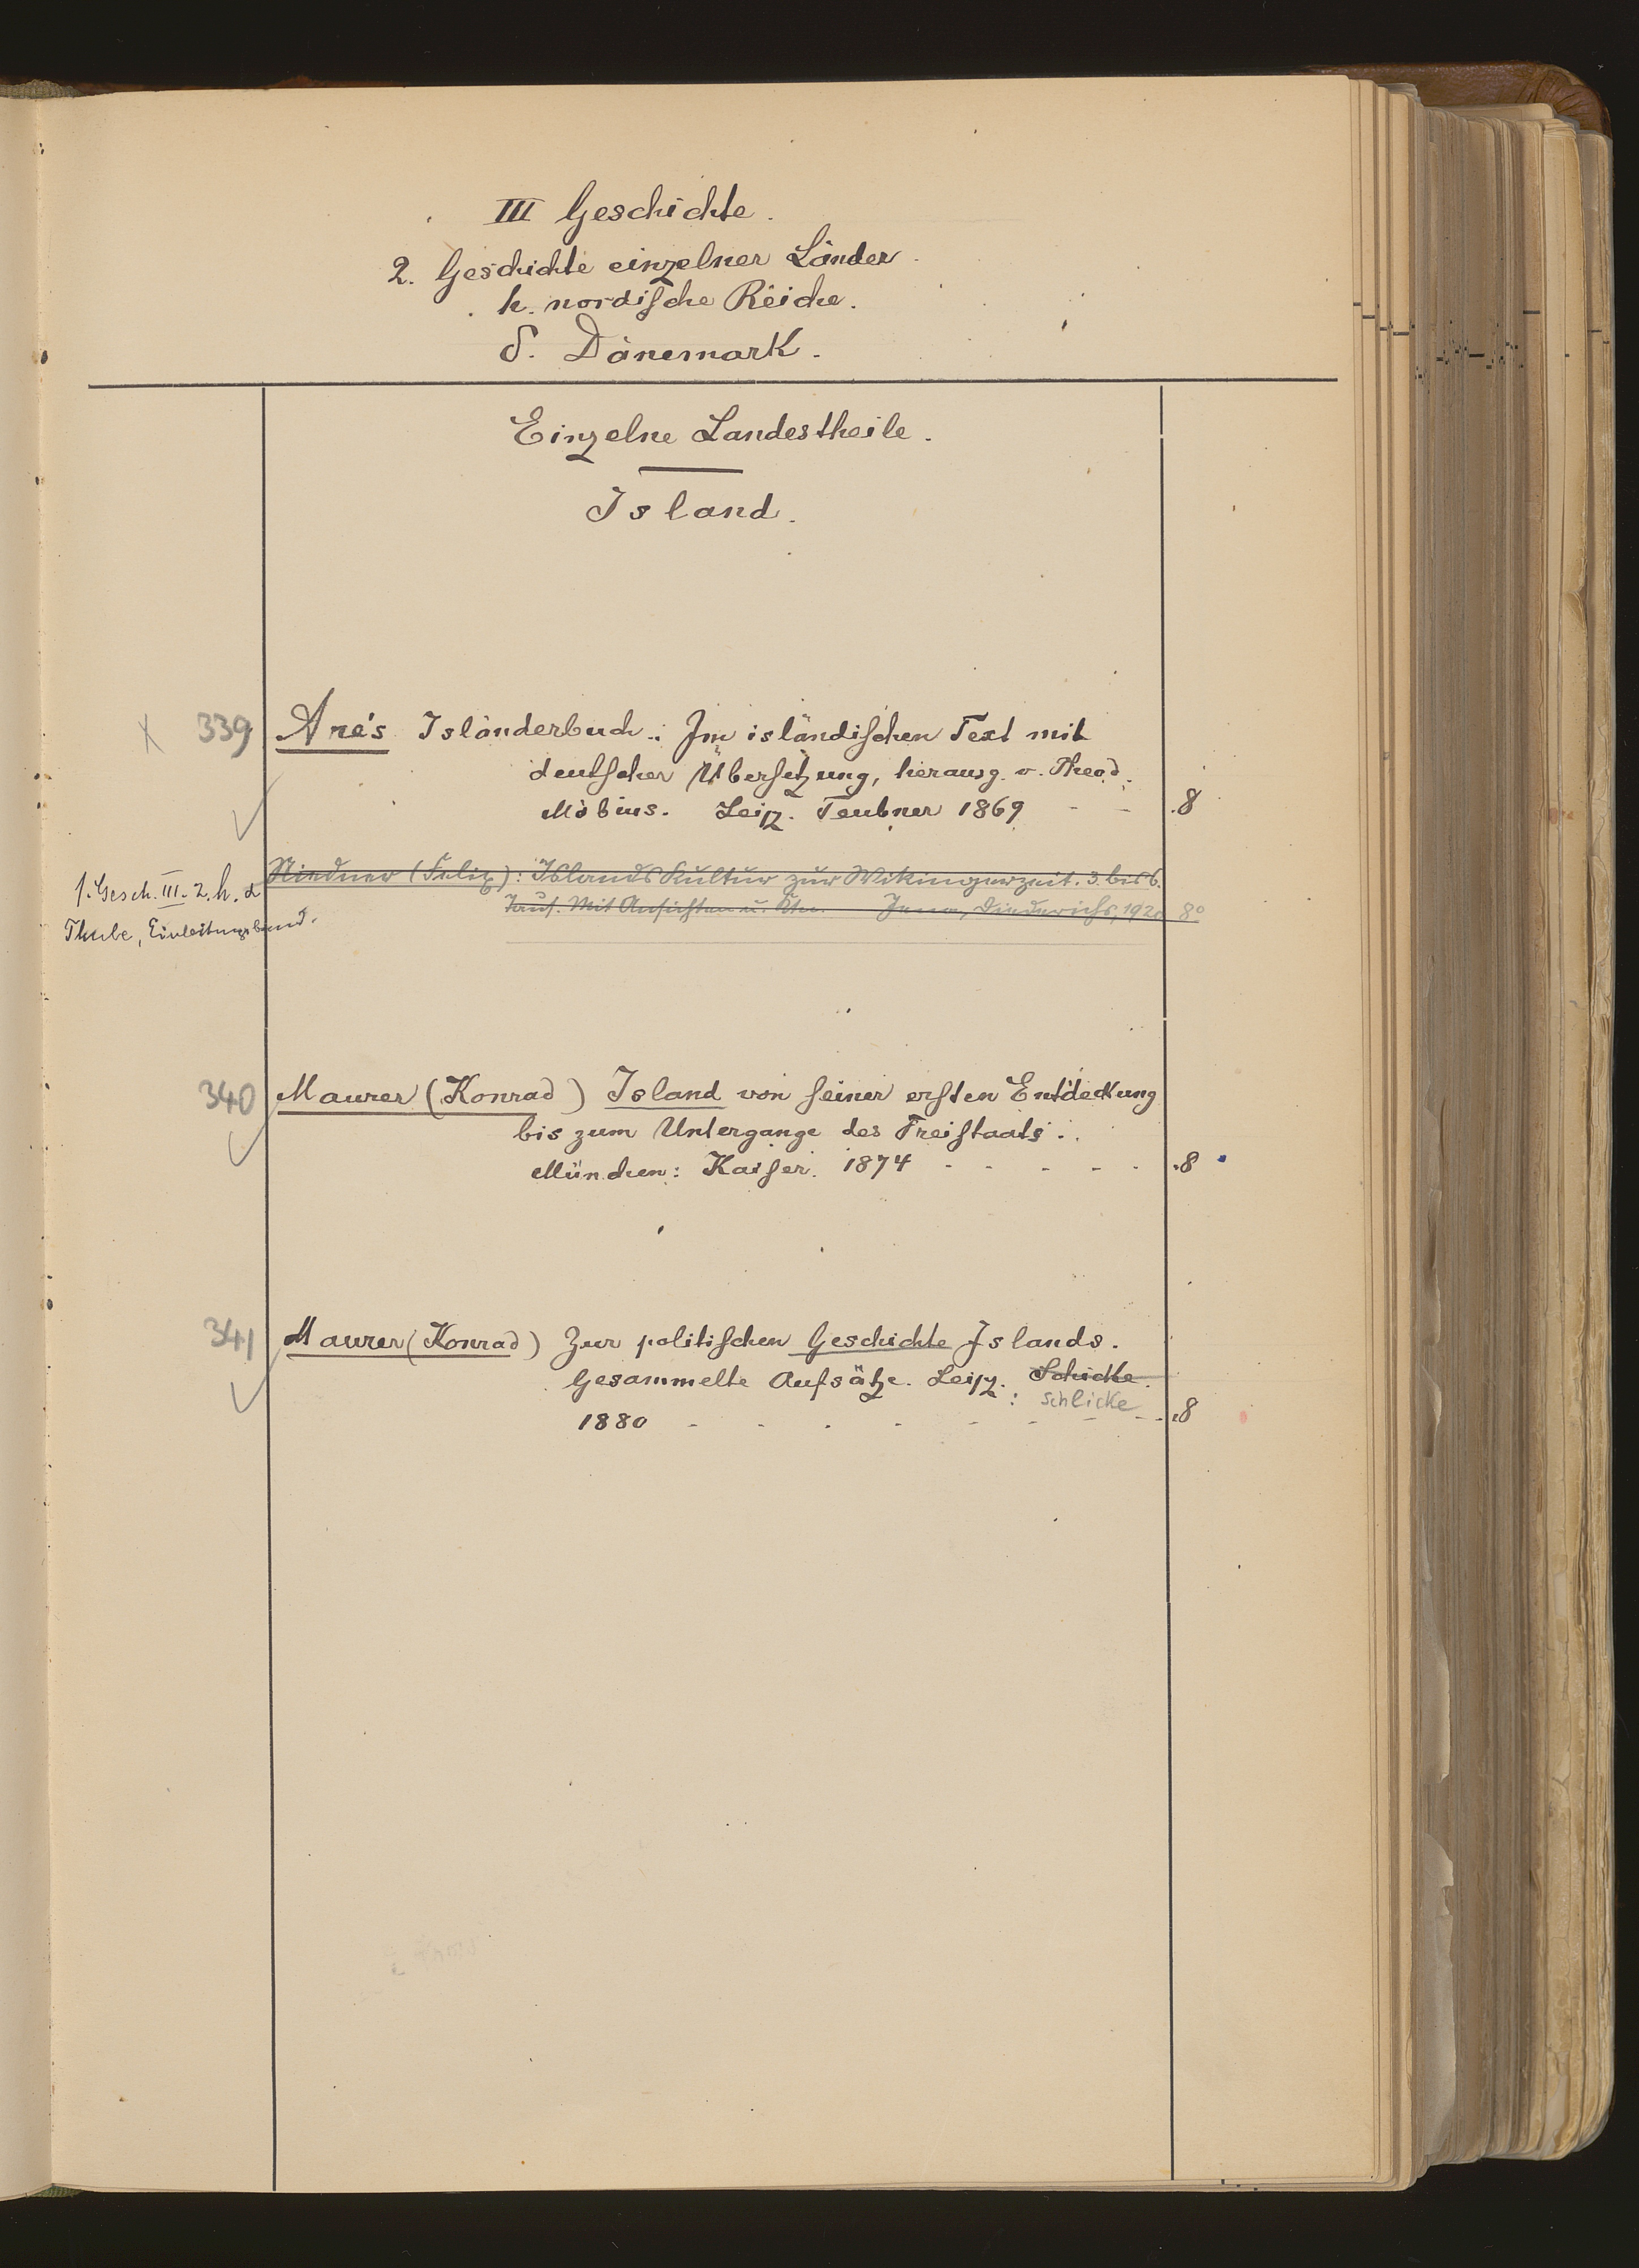 III Geschichte.
2. Geschichte einzelner Länder.
h. nordische Reiche.
δ. Dänemark.
Einzelne Landestheile.
Island.
X 339 Are's Isländerbuch: Im isländischen Text mit
deutscher Übersetzung, herausg. v. Theod.
Möbius. Leipz. Teubner 1869 - - 8
Niedner (Felix): Islands Kultur zur Wikingerzeit. 3. bis 6.
Taus. Mit Ansichten u. Ktn. Jena, Diederichs, 1920 8°
f. Gesch. III. 2. h. d
Thule, Einleitungsband.
340 Maurer (Konrad) Island von seiner ersten Entdeckung
bis zum Untergange des Freistaats.
München: Kaiser. 1874 - - - - - 8
341 Maurer (Konrad) Zur politischen Geschichte Islands.
Gesammelte Aufsätze. Leipz. Schicke.
: Schlicke
1880 - - - - - - - - 8